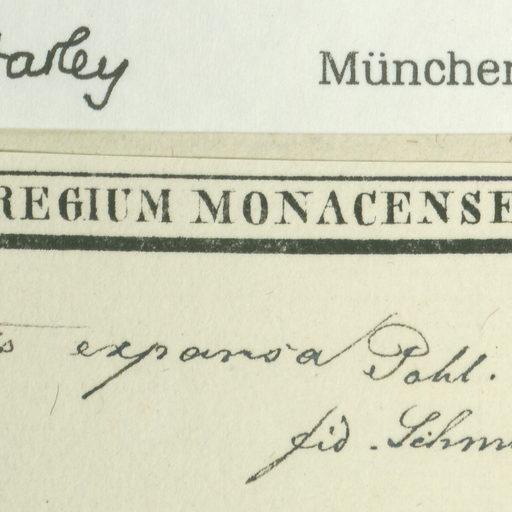 Harley München
REGIUM MONACENSE
s expansa Pohl.
fid. Schm